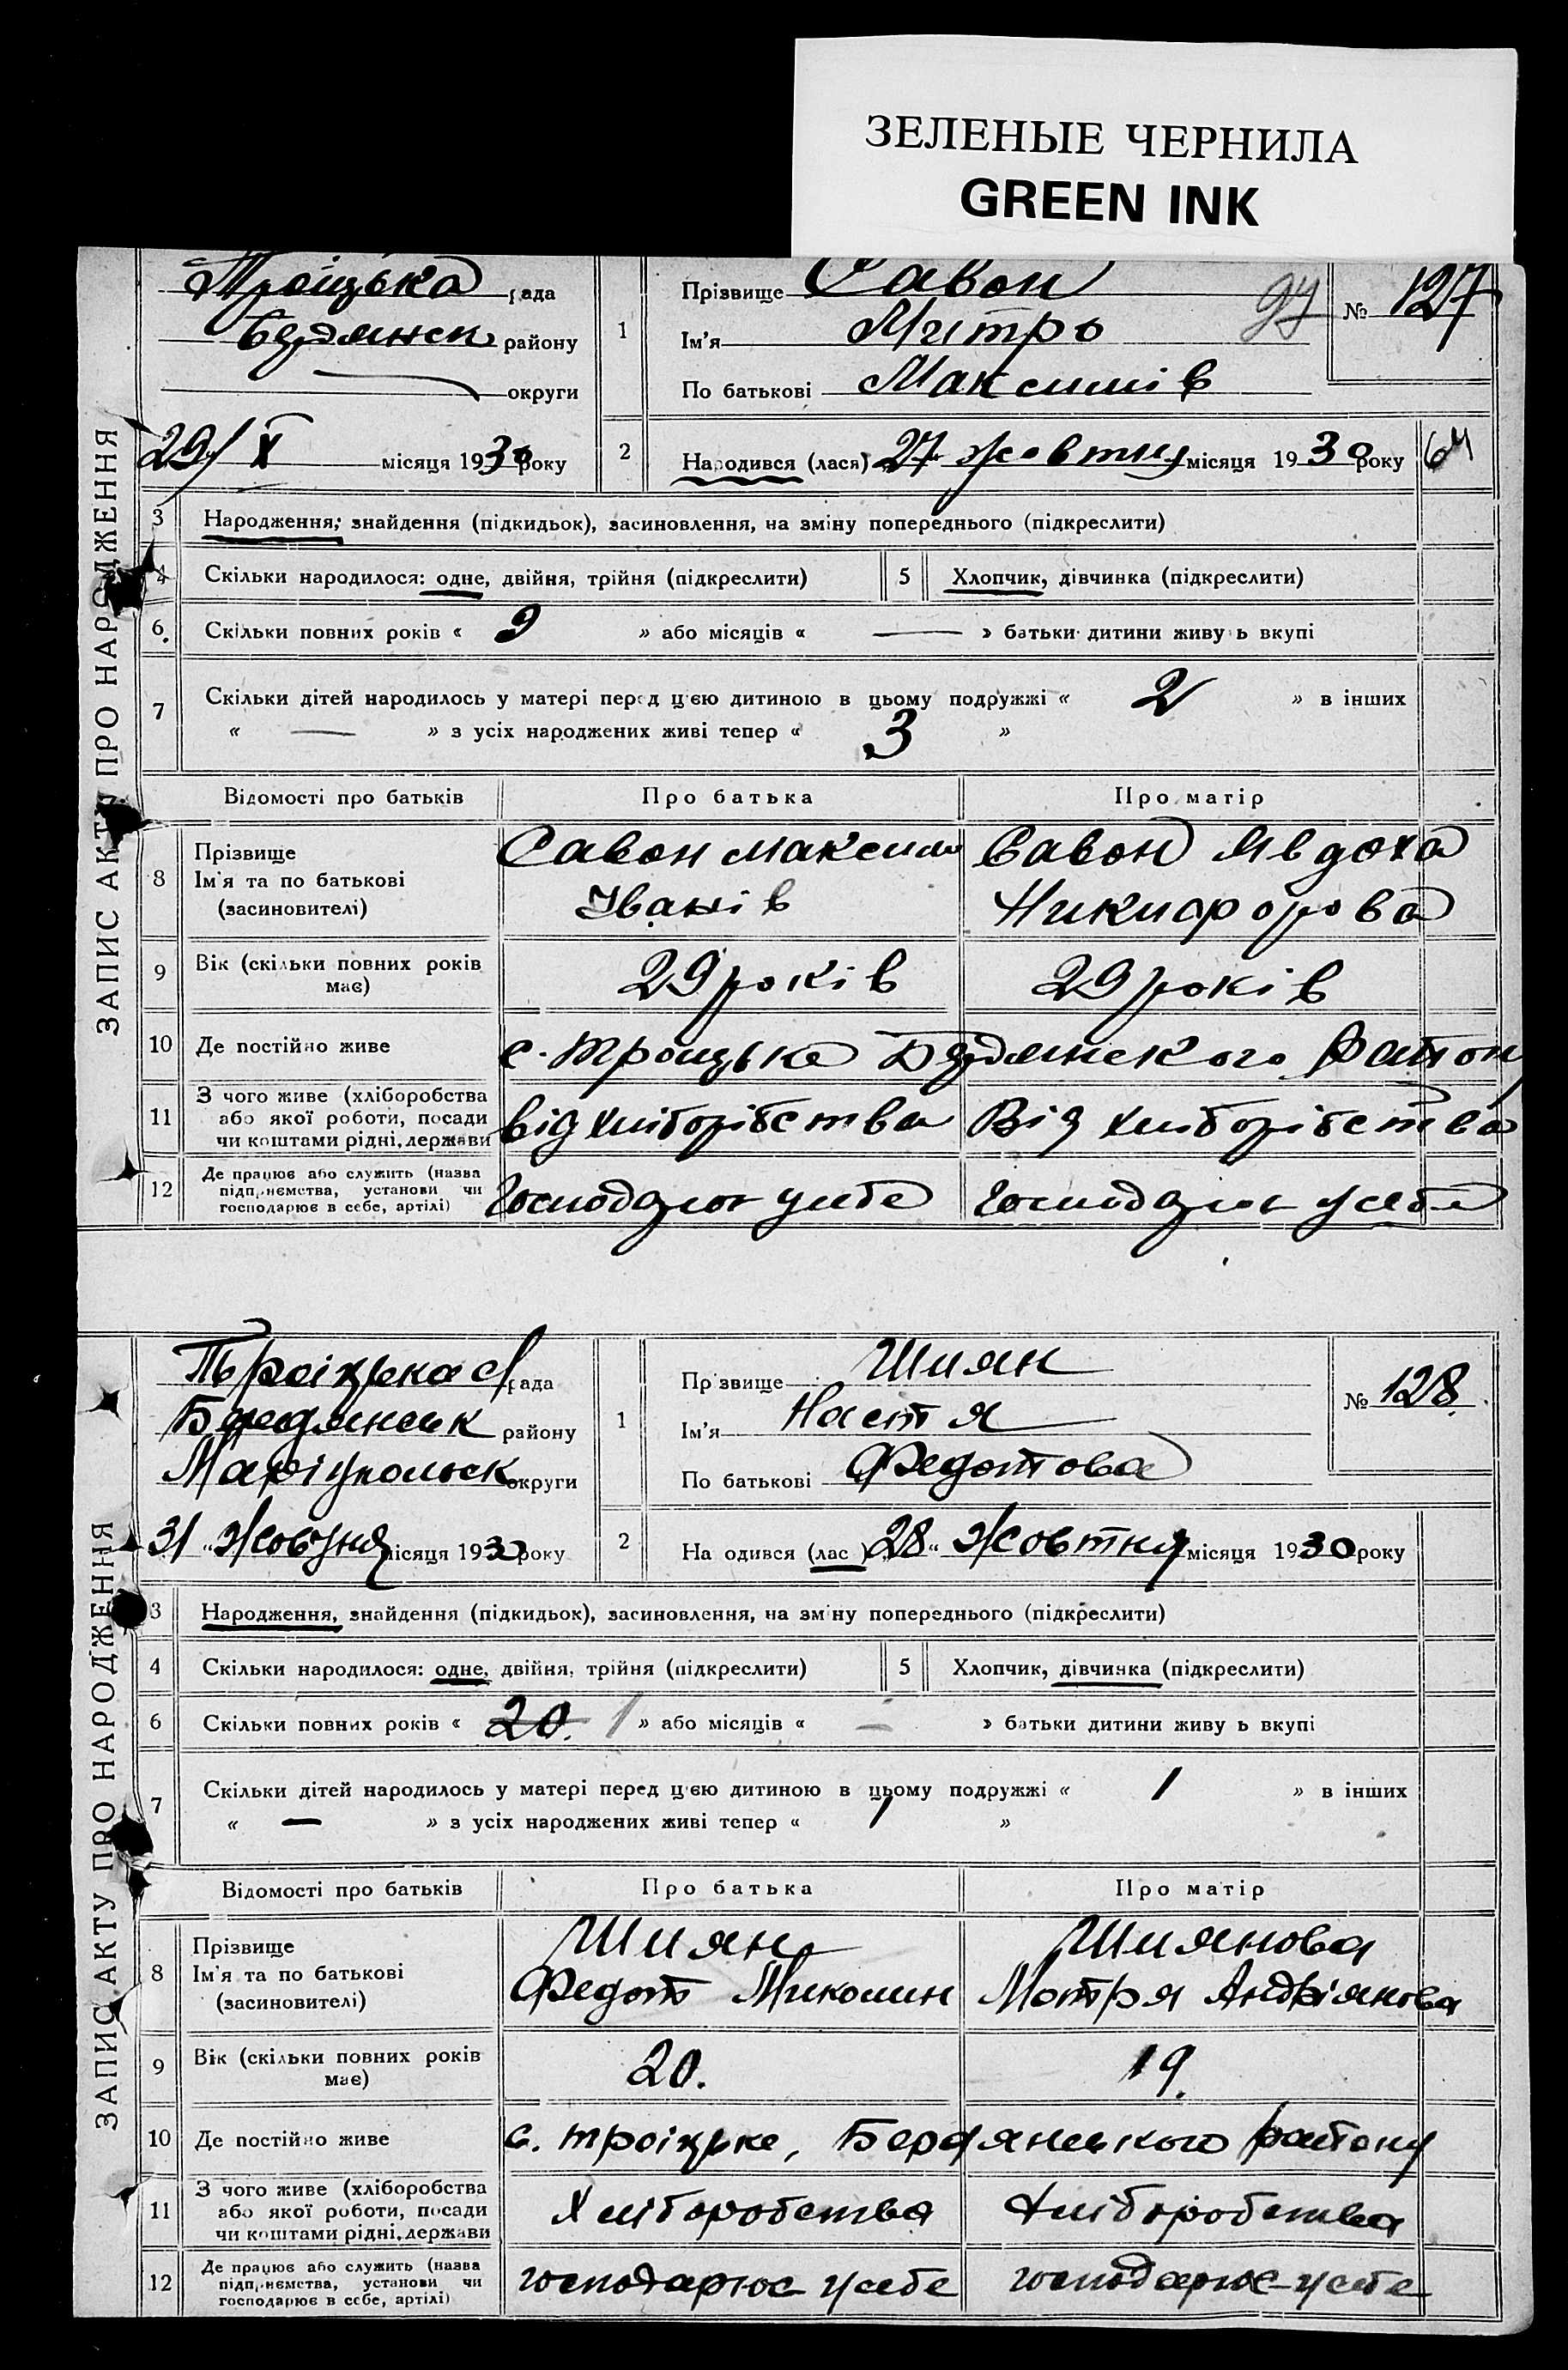 ЗЕЛЕНЫЕ ЧЕРНИЛА
GREEN INK
ЗАПИС АКТУ ПРО НАРОДЖЕННЯ
Троїцька рада
Бердянськ району
округи
29/X місяця 1930 року
1
Прізвище Савон
Ім'я Митро
По батькові Максимів
№ 127
2
Народився (лася) 27 жовтня місяця 1930 року
64
3 Народження, знайдення (підкидьок), засиновлення, на зміну попереднього (підкреслити)
4 Скільки народилося: одне, двійня, трійня (підкреслити) 5 Хлопчик, дівчинка (підкреслити)
6. Скільки повних років « 9 » або місяців « — » батьки дитини живуть вкупі
7 Скільки дітей народилось у матері перед цією дитиною в цьому подружжі « 2 » в інших
« — » з усіх народжених живі тепер « 3 »
Відомості про батьків Про батька Про матір
8 Прізвище
Ім'я та по батькові
(засиновителі)
Савон Максим
Іванів
Савон Явдоха
Никифорова
9 Вік (скільки повних років має) 29 років 29 років
10 Де постійно живе с. Троицьке Бердянского району
11 З чого живе (хліборобства
або якої роботи, посади
чи коштами рідні, держави
від хліборібства Від хліборібства
12 Де працює або служить (назва
підприємства, установи чи
господарює в себе, артілі)
Господарює у себе Господарює у себе
ЗАПИС АКТУ ПРО НАРОДЖЕННЯ
Троіцька с/рада
Бердянськ району
Маріупольск округи
31 " Жовтня місяця 1930 року
1
Прізвище Шиян
Ім'я Настя
По батькові Федотова
№ 128
2
На одився (лас ) 28 " Жовтня місяця 1930 року
3 Народження, знайдення (підкидьок), засиновлення, на зміну попереднього (підкреслити)
4 Скільки народилося: одне, двійня, трійня (підкреслити) 5 Хлопчик, дівчинка (підкреслити)
6 Скільки повних років « 20. 1 » або місяців « — » батьки дитини живу ь вкупі
7 Скільки дітей народилось у матері перед цією дитиною в цьому подружжі « 1 » в інших
« — » з усіх народжених живі тепер « 1 »
Відомості про батьків Про батька Про матір
8 Прізвище
Ім'я та по батькові
(засиновителі)
Шиян
Федот Миколин
Шиянова
Мотря Андріянова
9 Вік (скільки повних років має) 20. 19.
10 Де постійно живе с. Троіцьке, Бердянського району
11 З чого живе (хліборобства
або якої роботи, посади
чи коштами рідні, держави
Хліборобства Хліборобства
12 Де працює або служить (назва
підприємства, установи чи
господарює в себе, артілі)
господарює у себе господарює у себе